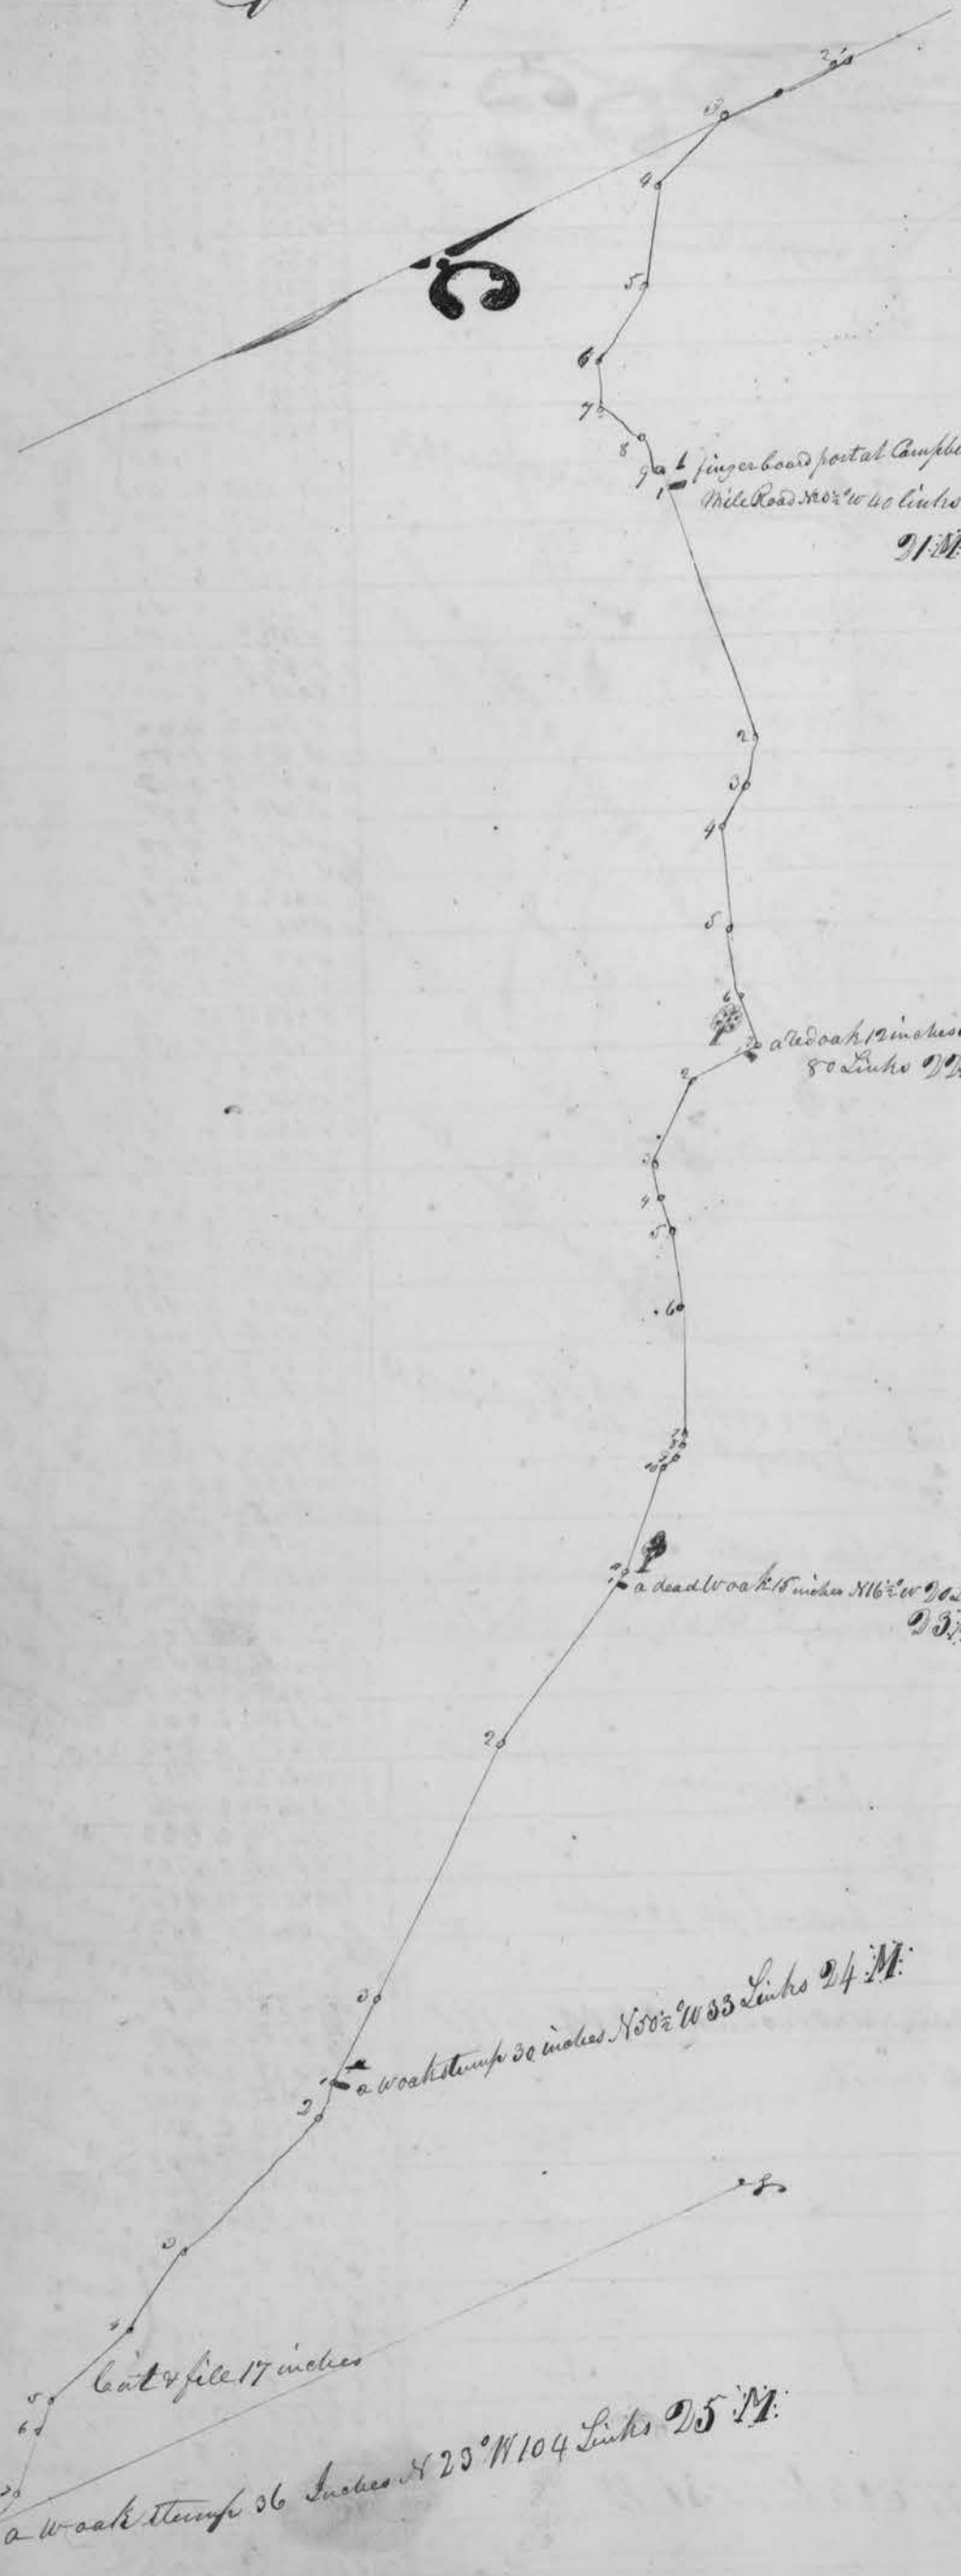 2
3
4
5
6
7
8
9
1
fingerboard post at
Mile Road W 40 links
21 M
2
3
4
5
6
1
a red oak 12 inches
80 Links 22
2
3
4
5
6
7
8
9
10
11
1
a dead W oak 15 inches N16½° W 20
23
2
3
1
a W oak stump 30 inches N50½° W 33 Links 24 M
2
3
4
5
Cut & fill 17 inches
6
7
a W oak stump 36 Inches N 23° W 104 Links 25 M